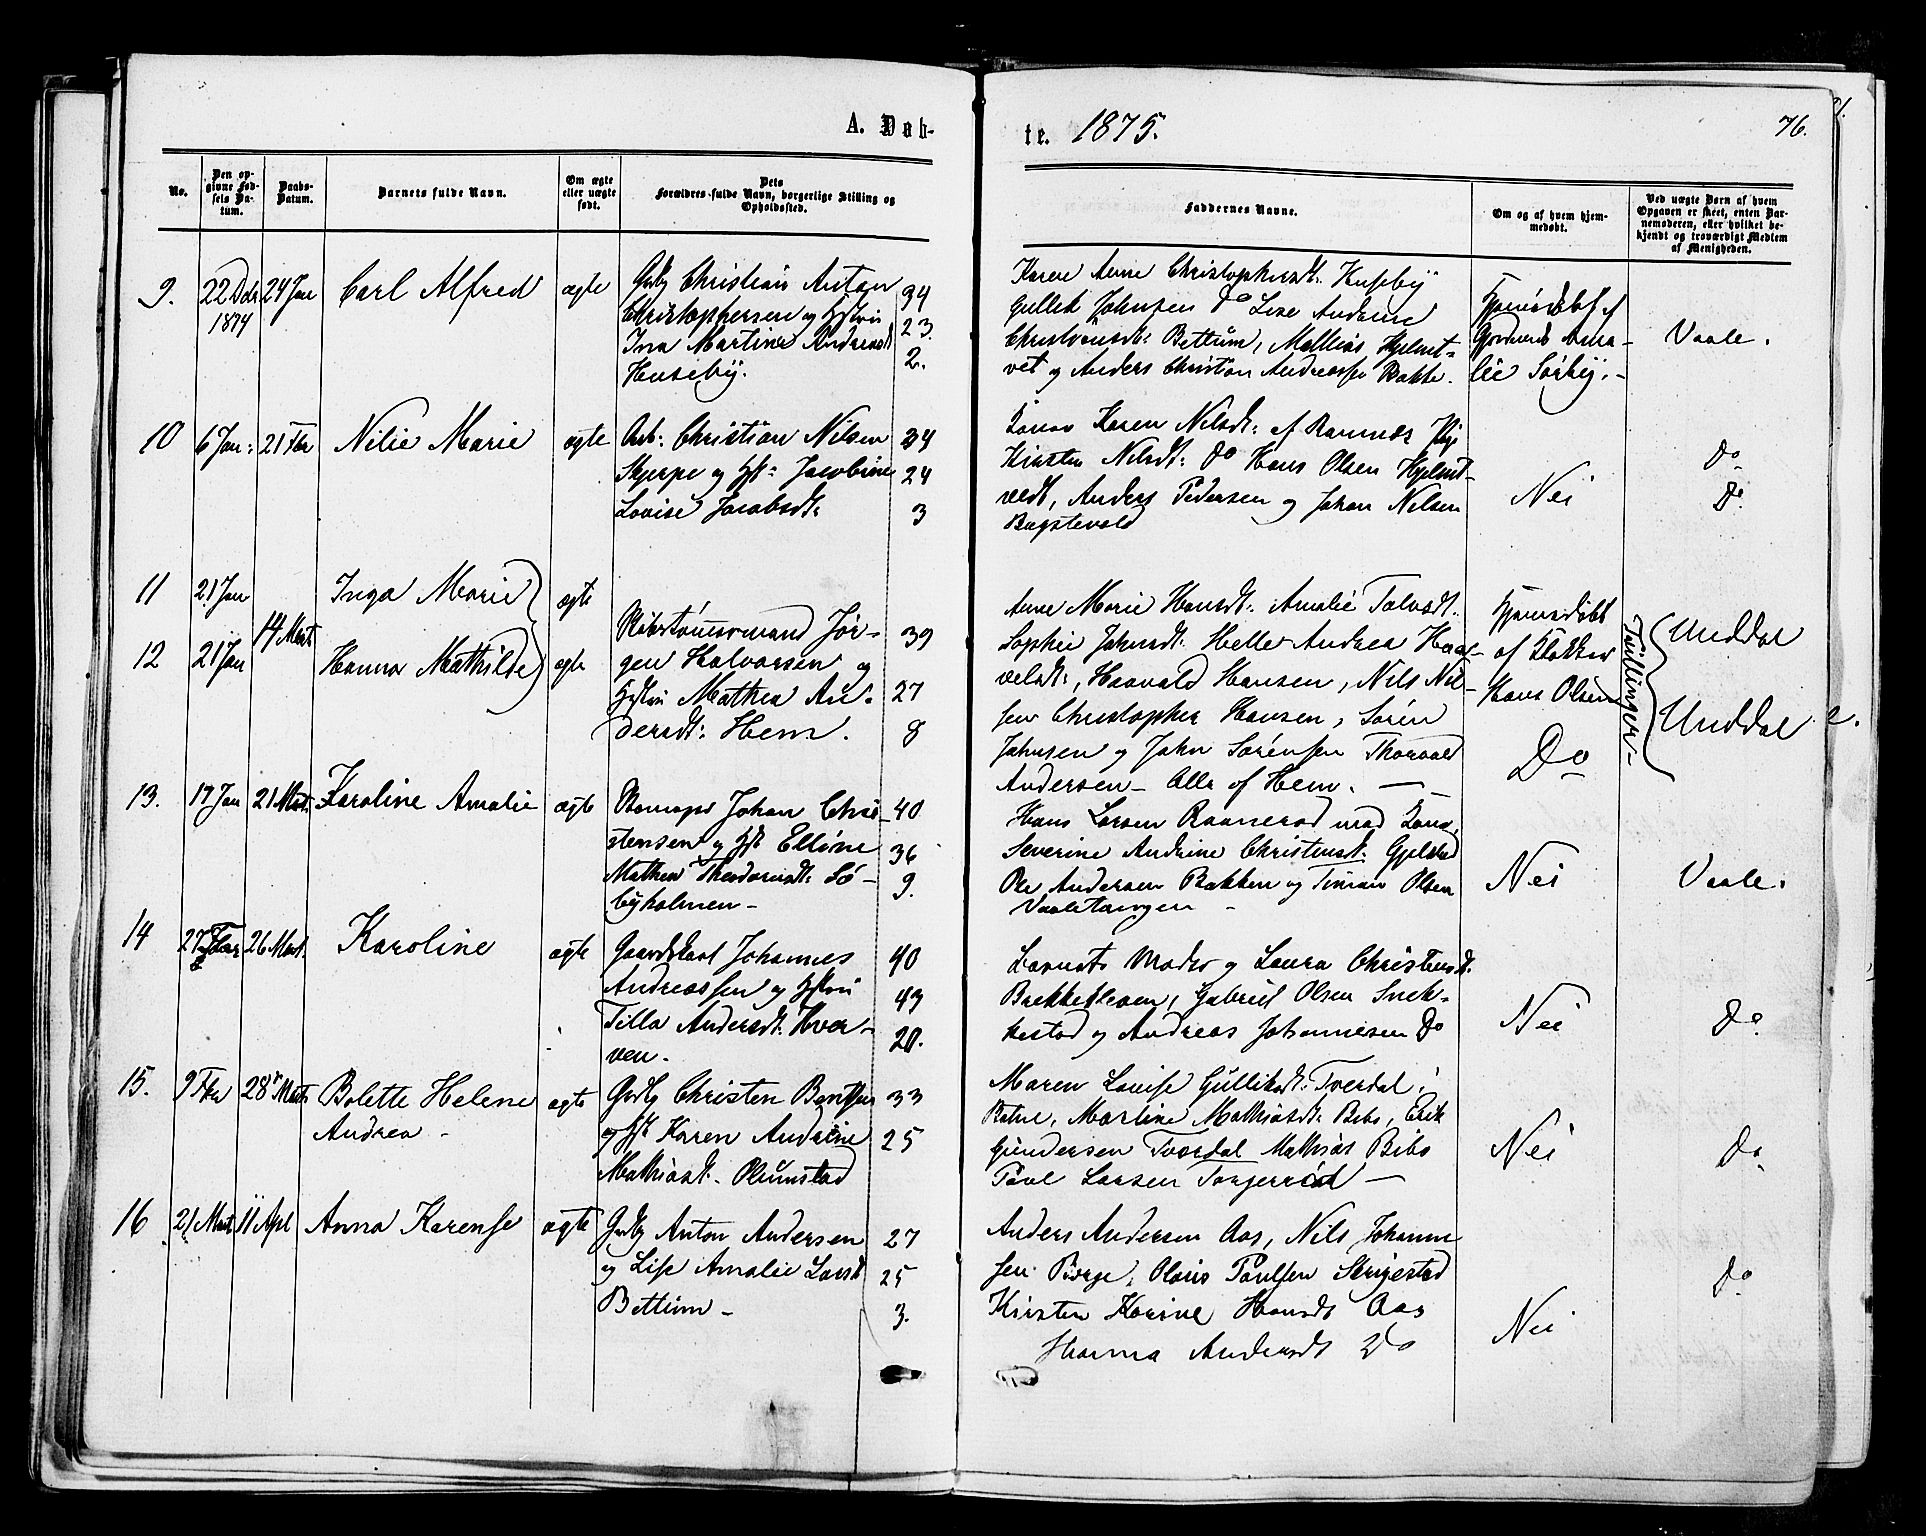 A. Døb-
te. 1875.
76.
No.
Den op-
givne Fød-
sels Da-
tum.
Daabs-
Datum.
Barnets fulde Navn.
Om ægte
eller uægte
født.
Dets
Forældres fulde Navn, borgerlige Stilling og
Opholdssted.
Faddernes Navne.
Om og af hvem hjem-
medøbt.
Ved uægte Børn af hvem
Opgaven er skeet, enten Bar-
nemoderen, eller hvilket be-
kjendt og troværdigt Medlem
af Menigheden.
9. 22 Dcbr 24 Jan Carl Alfred ægte Gbrg Christian Anton 34
1874
Christophersen og Hstru 23.
Ina Martine Andreasdt 2.
Huseby.
Karen Anne Christophersdt: Huseby
Gullik Johnsen Do Lise Andrine
Christiansdt: Bettum, Mathias Hjelmt-
vet og Anders Christian Andreassen Bakke.
Hjemmedøbt af
lie Sørby.
Vaale.
10 6 Jan: 21 Fbr Nilie Marie ægte Arb: Christian Nilsen 34
Skjerpe og Hst: Jacobine 24
Lovise Jacobsdt: 3
Karen Nilsdt: af Ramnæs
Kirsten Nilsdt: Do Hans Olsen Hjelmt-
vedt, Anders Pedersen og Johan Nilsen
Bagstevold
Nei
Do
Do
11 21 Jan Inga Marie ægte
14 Marts
12 21 Jan Hanna Mathilde ægte
Jør- 39
gen Halvorsen og
Hstru Mathea An- 27
dersdt: Hem. 8
Anne Marie Hansdt: Amalie
Sophie Johnsdt: Helle Andrea Haa-
velsdt:, Haavald Hansen, Nils Nil-
sen Christopher Hansen, Søren
Johnsen og John Sørensen Thorvald
Andersen - Alle af Hem. -
Hjemmedøbt
af Klokker
Hans Olsen
Do
Tvillinger-
Unddal
Unddal 2.
13. 17 Jan 21 Mts Karoline Amalie ægte Johan Chri- 40
stensen og Hst Elline 36
Mathea Theodorsdt: Sø- 9.
byholmen -
Hans Larsen Raanerød med Kone,
Severine Andrine Christensdt: Gjelstad
Ole Andersen Bakken og Timan Olsen
Vaaletangen -
Nei
Vaale.
14 27 Fbr 26 Mart. Karoline ægte Gaardskarl Johannes 40
Andreassen og Hstru 43
Tilla Andersdt: Hver- 20.
ven.
Barnets Moder og Laura Christensdt.
Brekkekleven, Gabriel Olsen Snek-
kestad og Andreas Johannesen Do
Nei
Do
15. 9 Fbr 28 Marts Bolette Helene ægte Gbrg Christen Bentsen 33
Andrea -
og Hst Karen Andrine 25
Mathiasdt. Plumstad
Maren Lovise Gulliksdt: Tverdal,
Martine Mathiasdt: Bibo, Erik
Gundersen Tverdal Mathias Bibo
Paul Larsen Torgerrød -
Nei
Do
16 21 Marts 11 Apl Anna Karense ægte Gbrg Anton Andersen 27
og Lise Amalie Larsdt 25
Bettum - 3.
Anders Andersen Aas, Nils Johanne-
sen Borge, Olaus Paulsen Skrigestad
Kirsten Karine Hansdt Aas
Hanna Andersdt Do
Nei
Do